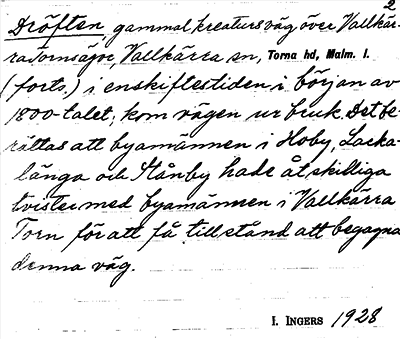 2
Dröften, gammal kreatursväg över Vallkär-
ra Tornsägor, Vallkärra sn, Torna hd, Malm. l.
(forts.) i enskiftestiden i början av
1800-talet, kom vägen ur bruk. Det be-
rättas att byamännen i Hoby, Lacka-
länga och Stånby hade åtskilliga
tvister med byamännen i Vallkärra
Torn för att få tillstånd att begagna
denna väg.
I. INGERS 1928